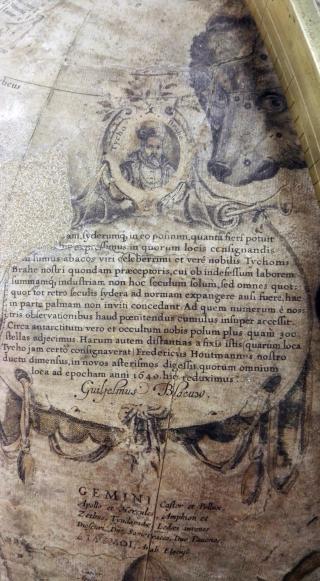 Tycho
am syderumq, in eo positum, quanta fieri potuit
expressimus, in quorum locis consignandis
sumus abacos viri celeberrimi et verè nobilis Tychonis
Brahe nostri quondam præceptoris, cui ob indefessum laborem
summamq, industriam non hoc seculum solum, sed omnes quot-
quot tot retro seculis sydera ad normam expangere ausi fuere, hac
in parte palmam non inviti concedant. Ad quem numerum è nos-
tris observationibus haud pœnitendus cumulus insuper accessit.
Circa antarcticum verò et occultum nobis polum plus quam 300
stellas adjecimus. Harum autem distantias à fixis istis quarum loca
Tycho jam certò consignaverat; Fredericus Houtmannus nostro
ductu dimensus, in novos asterismos digessit, quorum omnium
loca ad epocham anni 1640 hic reduximus.
Guiljelmus Blaeuw.
GEMINI Castor et Pollux,
Apollo et Hercules, Amphion et
Zethus, Tyndaridæ, Ledæi juvenes
Dioscuri, Duo